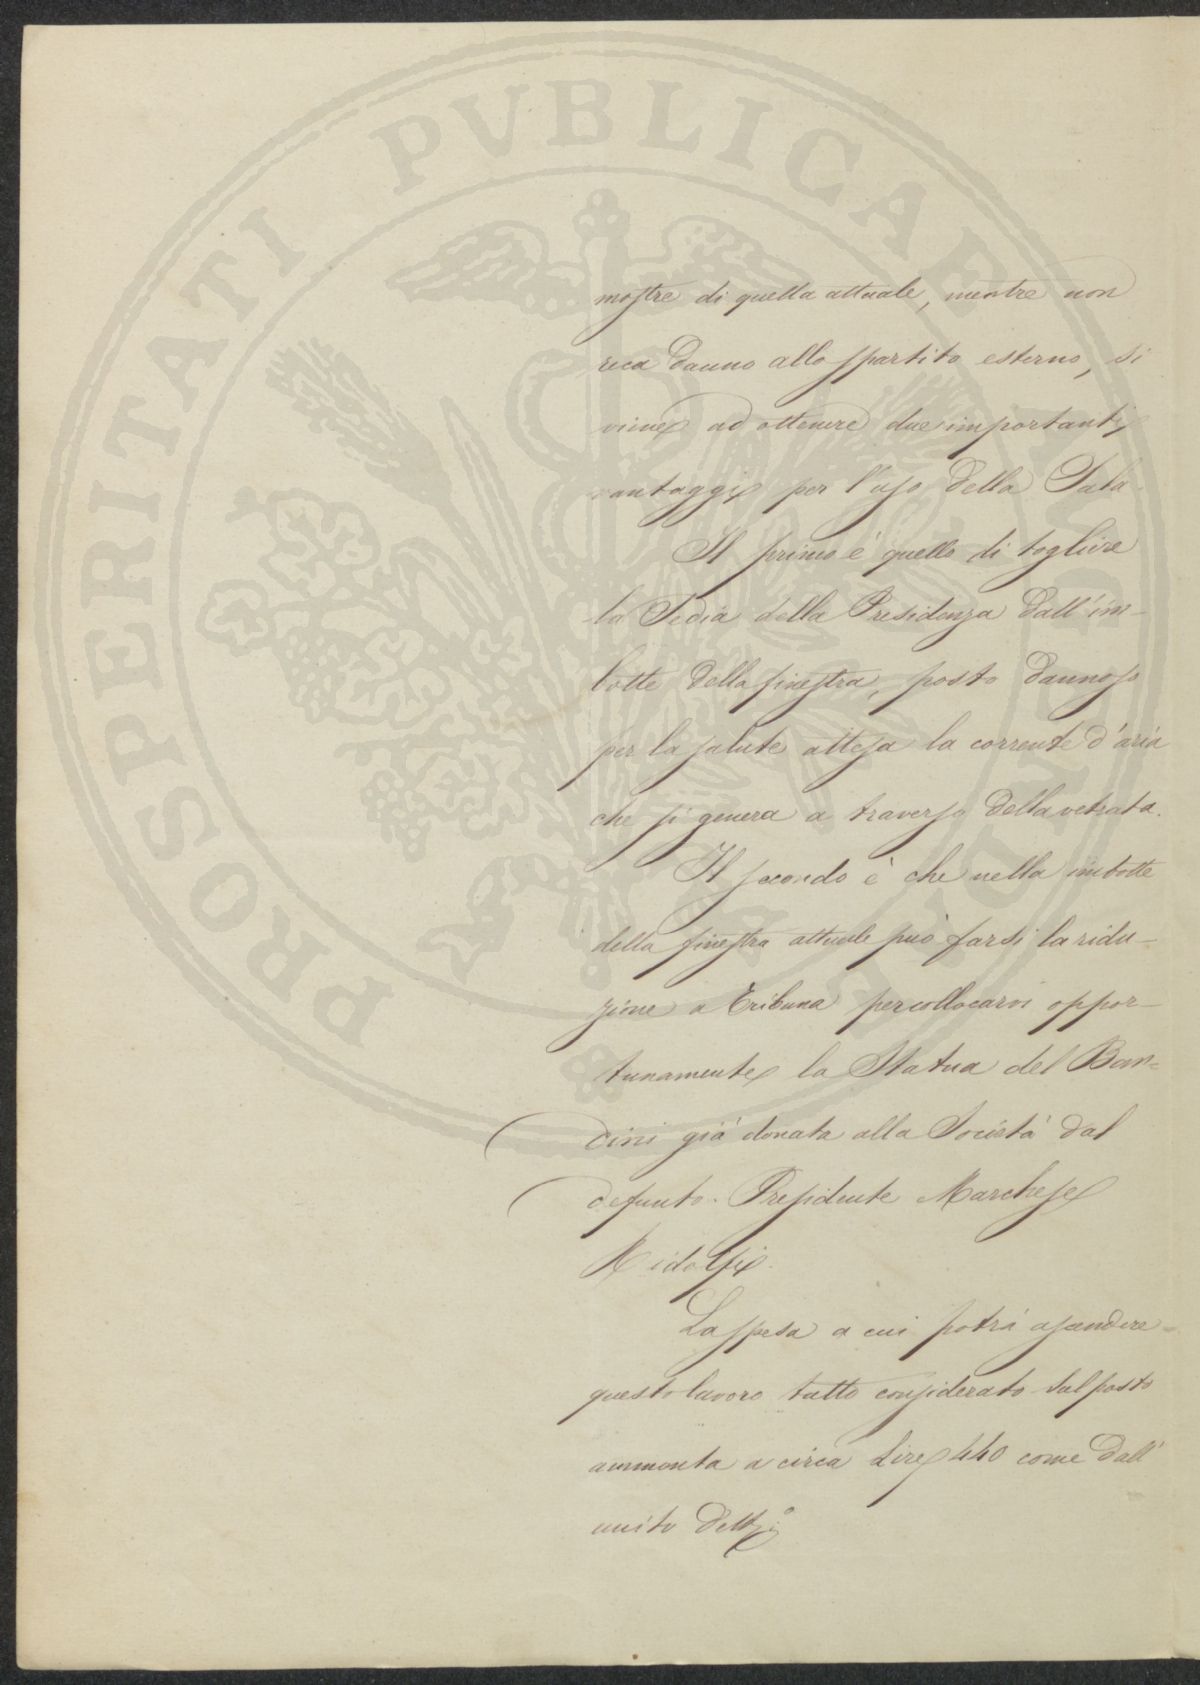 PROSPERITATI PVBLICAE
mostre di quella attuale, mentre non
reca danno allo spartito esterno, si
viene ad ottenere due importanti
vantaggi per l'uso della Sala.
Il primo è quello di togliere
la Sedia della Presidenza dall'im-
botte della finestra, posto dannoso
per la salute attesa la corrente d'aria
che si genera a traverso della vetrata.
Il secondo è che nella imbotte
della finestra attuale può farsi la ridu-
zione a Tribuna per collocarvi oppor-
tunamente la Statua del Ban-
dini già donata alla Società dal
defunto Presidente Marchese
Ridolfi.
La spesa a cui potrà ascendere
questo lavoro tutto considerato sul posto
ammonta a circa Lire 440 come dall'
unito